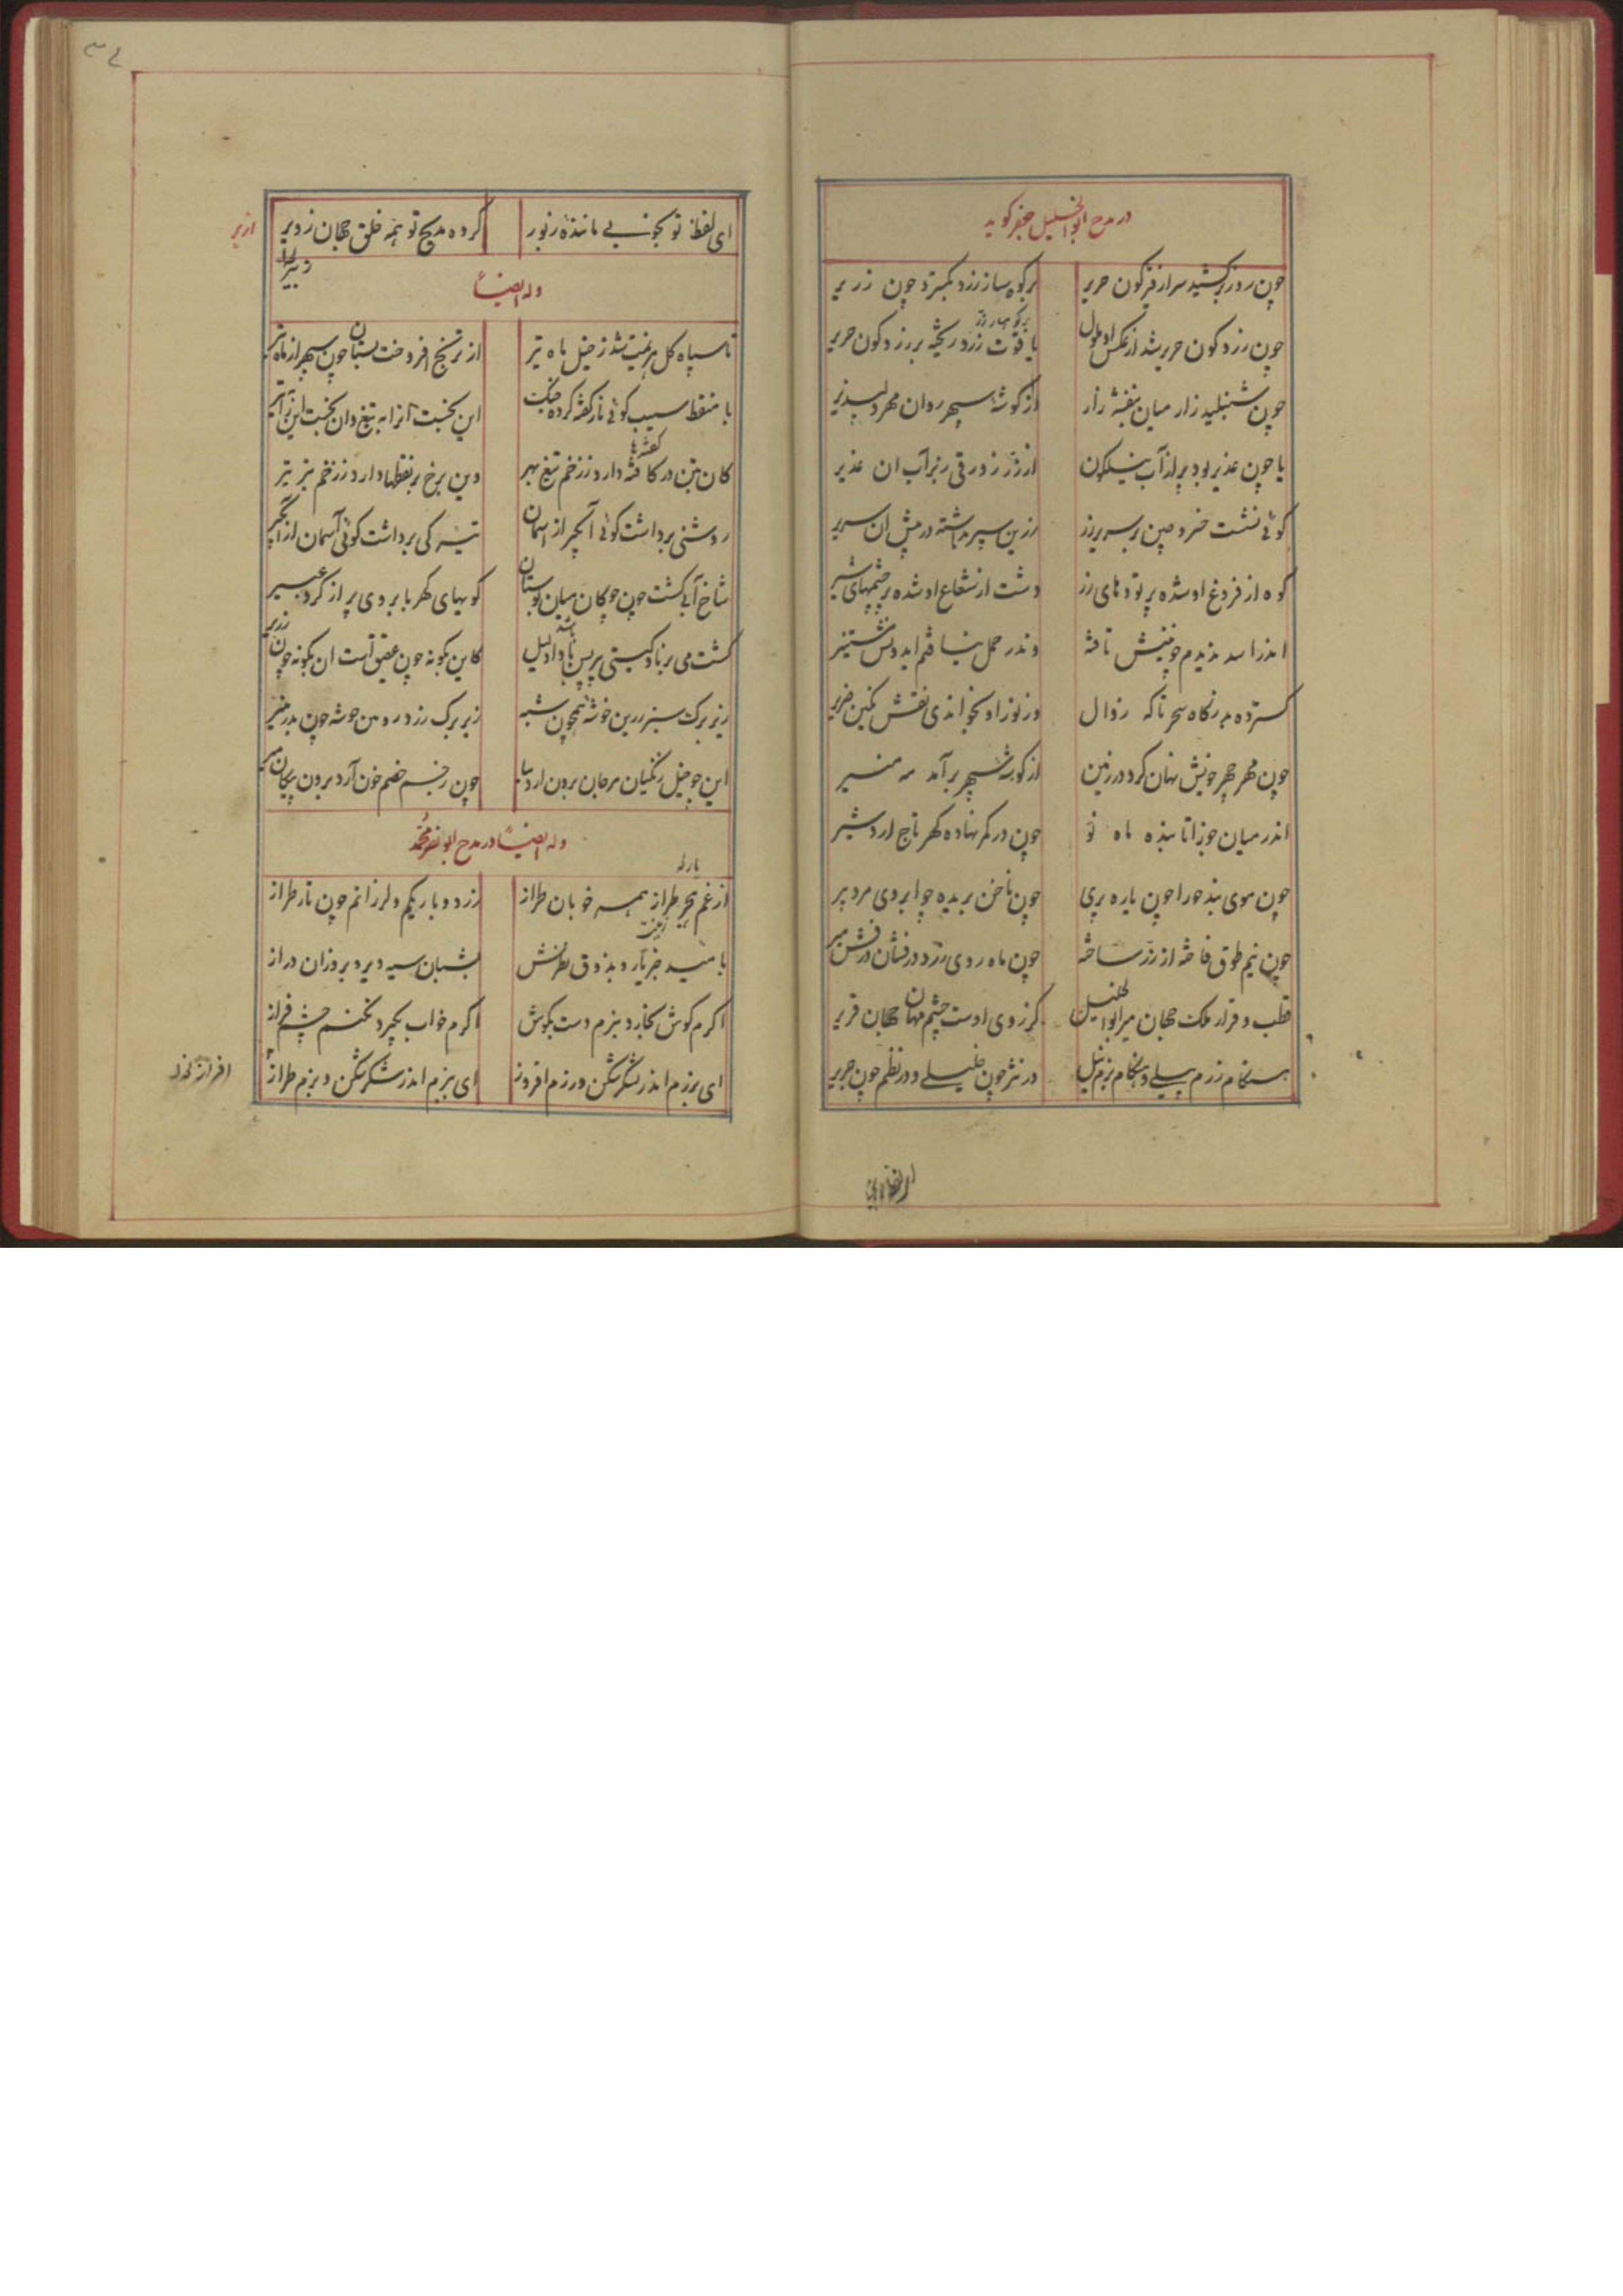 در مدح ابوالخلیل جعفر کوید
چون روز برکشید سر از قیرکون حریر بر کوه ساز زرد بکسترد چون زریر
بر کوهسار زر
چون زرد کون حریر شد از عکس او جبال یاقوت زرد ریخته بر زرد کون حریر
چون شنبلید زار میان بنفشه زار از کوشهٔ سپهر روان مهر دلپذیر
یا چون غدیر بود پر از آب نیلکون از زر زورقی زبر آب ان غدیر
کوئی نشست خسرو چین بر سریر زر زرین سپر بداشته در پیش ان سریر
کوه از فروغ او شده پر تودهای زر دشت از شعاع او شده پر چشمهای شیر
اندر اسد ندیدم خونیش تافته وندر حمل نیافتم ایدونش مستنیر
کسترده بدر نکاه سحر تا که زوال وز نور او بخواندی نقش نکین ضریر
چون مهر چهر خویش نهان کرد در زمین از کوشهٔ سپهر برآمد مه منیر
اندر میان جوزا تابنده ماه نو چون در کمر نهاده کهر تاج اردشیر
چون موی بند حورا چون یاره پری چون ناخن بریده چو ابروی مرد پیر
چون نیم طوق فاخته از زر ساخته چون ماه روی زرد درفشان درفش میر
قطب و قرار ملک جهان میر ابوالخلیل کز روی اوست چشم مهان جهان قریر
هنکام رزم پیلی و هنکام بزم نیل در نثر چون خلیلی و در نظم چون جریر
ای لفظ تو بخوبی مانندهٔ زبور کرده مدیح تو همه خلق جهان ز بر
از بر
وله ایضاً
تا سپاه کل هزیمت شد ز خیل ماه تیر از ترنج افروخت بستان چون سپهر از ماه تیر
با منقط سیب کوئی نار کفته کرده جنک این بخست آنرا به تیغ وان بخست این را به تیر
کفتها
کان بتن در کافته دارد ز زخم تیغ بهر وین برخ بر نقطها دارد ز زخم تیز تیر
روشنی برداشت کوئی آبکیر از اسمان تیره کی برداشت کوئی آسمان از آبکیر
شاخ آبی کشت چون چوکان میان بوستان کویهای کهربا بر وی پر از کرد عبیر
کشت می برنا و کیتی پیر پس باشد دلیل کاین بکونه چون عقیق است ان بکونه چون زریر
زیر برک سبز زرین خوشهٔ همچون شبه زیر برک زرد رومین خوشه چون بدر منیر
این چو خیل زنکیان مرجان برون ارد بسا چون ز جسم خصم خون آرد برون پیکان میر
وله ایضاً در مدح ابو نصر محمد
از غم هجر طراز همه خوبان طراز زرد و باریکم و لرزانم چون تار طراز
بامید خبر یار و بذوق نظرش بشبان سیه دیر و بروزان دراز
اکرم کوش بخارد بزنم دست بکوش اکرم خواب بکیرد نکنم چشم فراز
ای برزم اندر لشکر شکن و رزم افروز ای ببزم اندر شکر شکن و بزم طراز